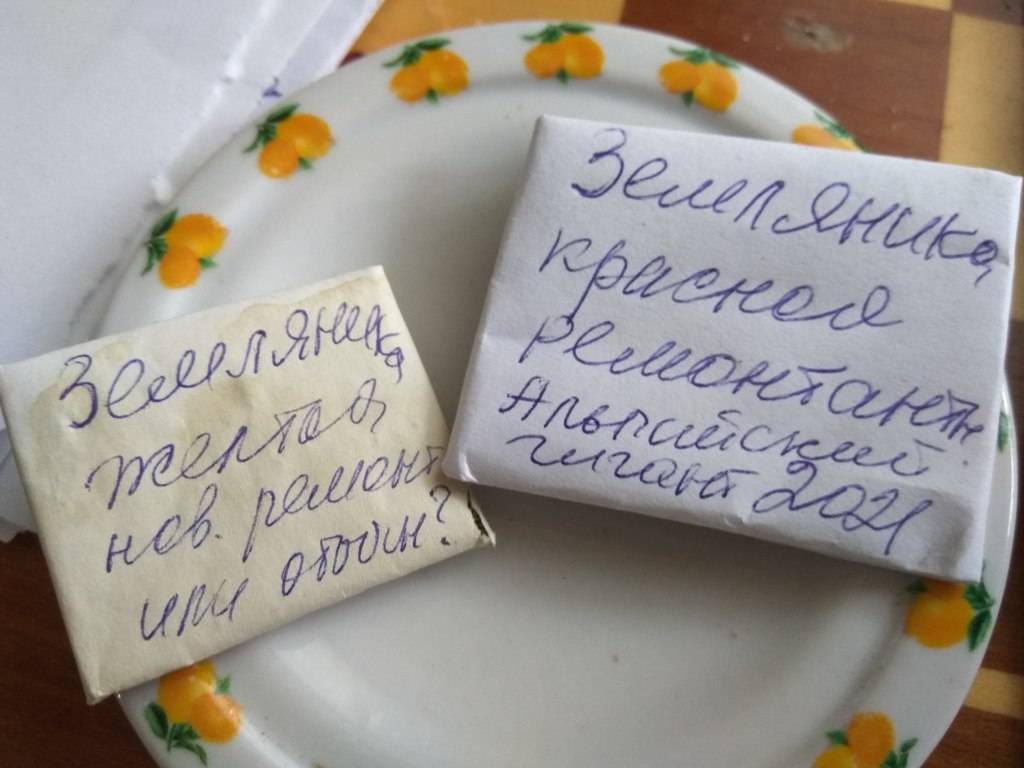 Земляника
желтая
нов. ремонт
или отбин?
Земляника
красная
ремонтантн
Альпийский
гигант 2021